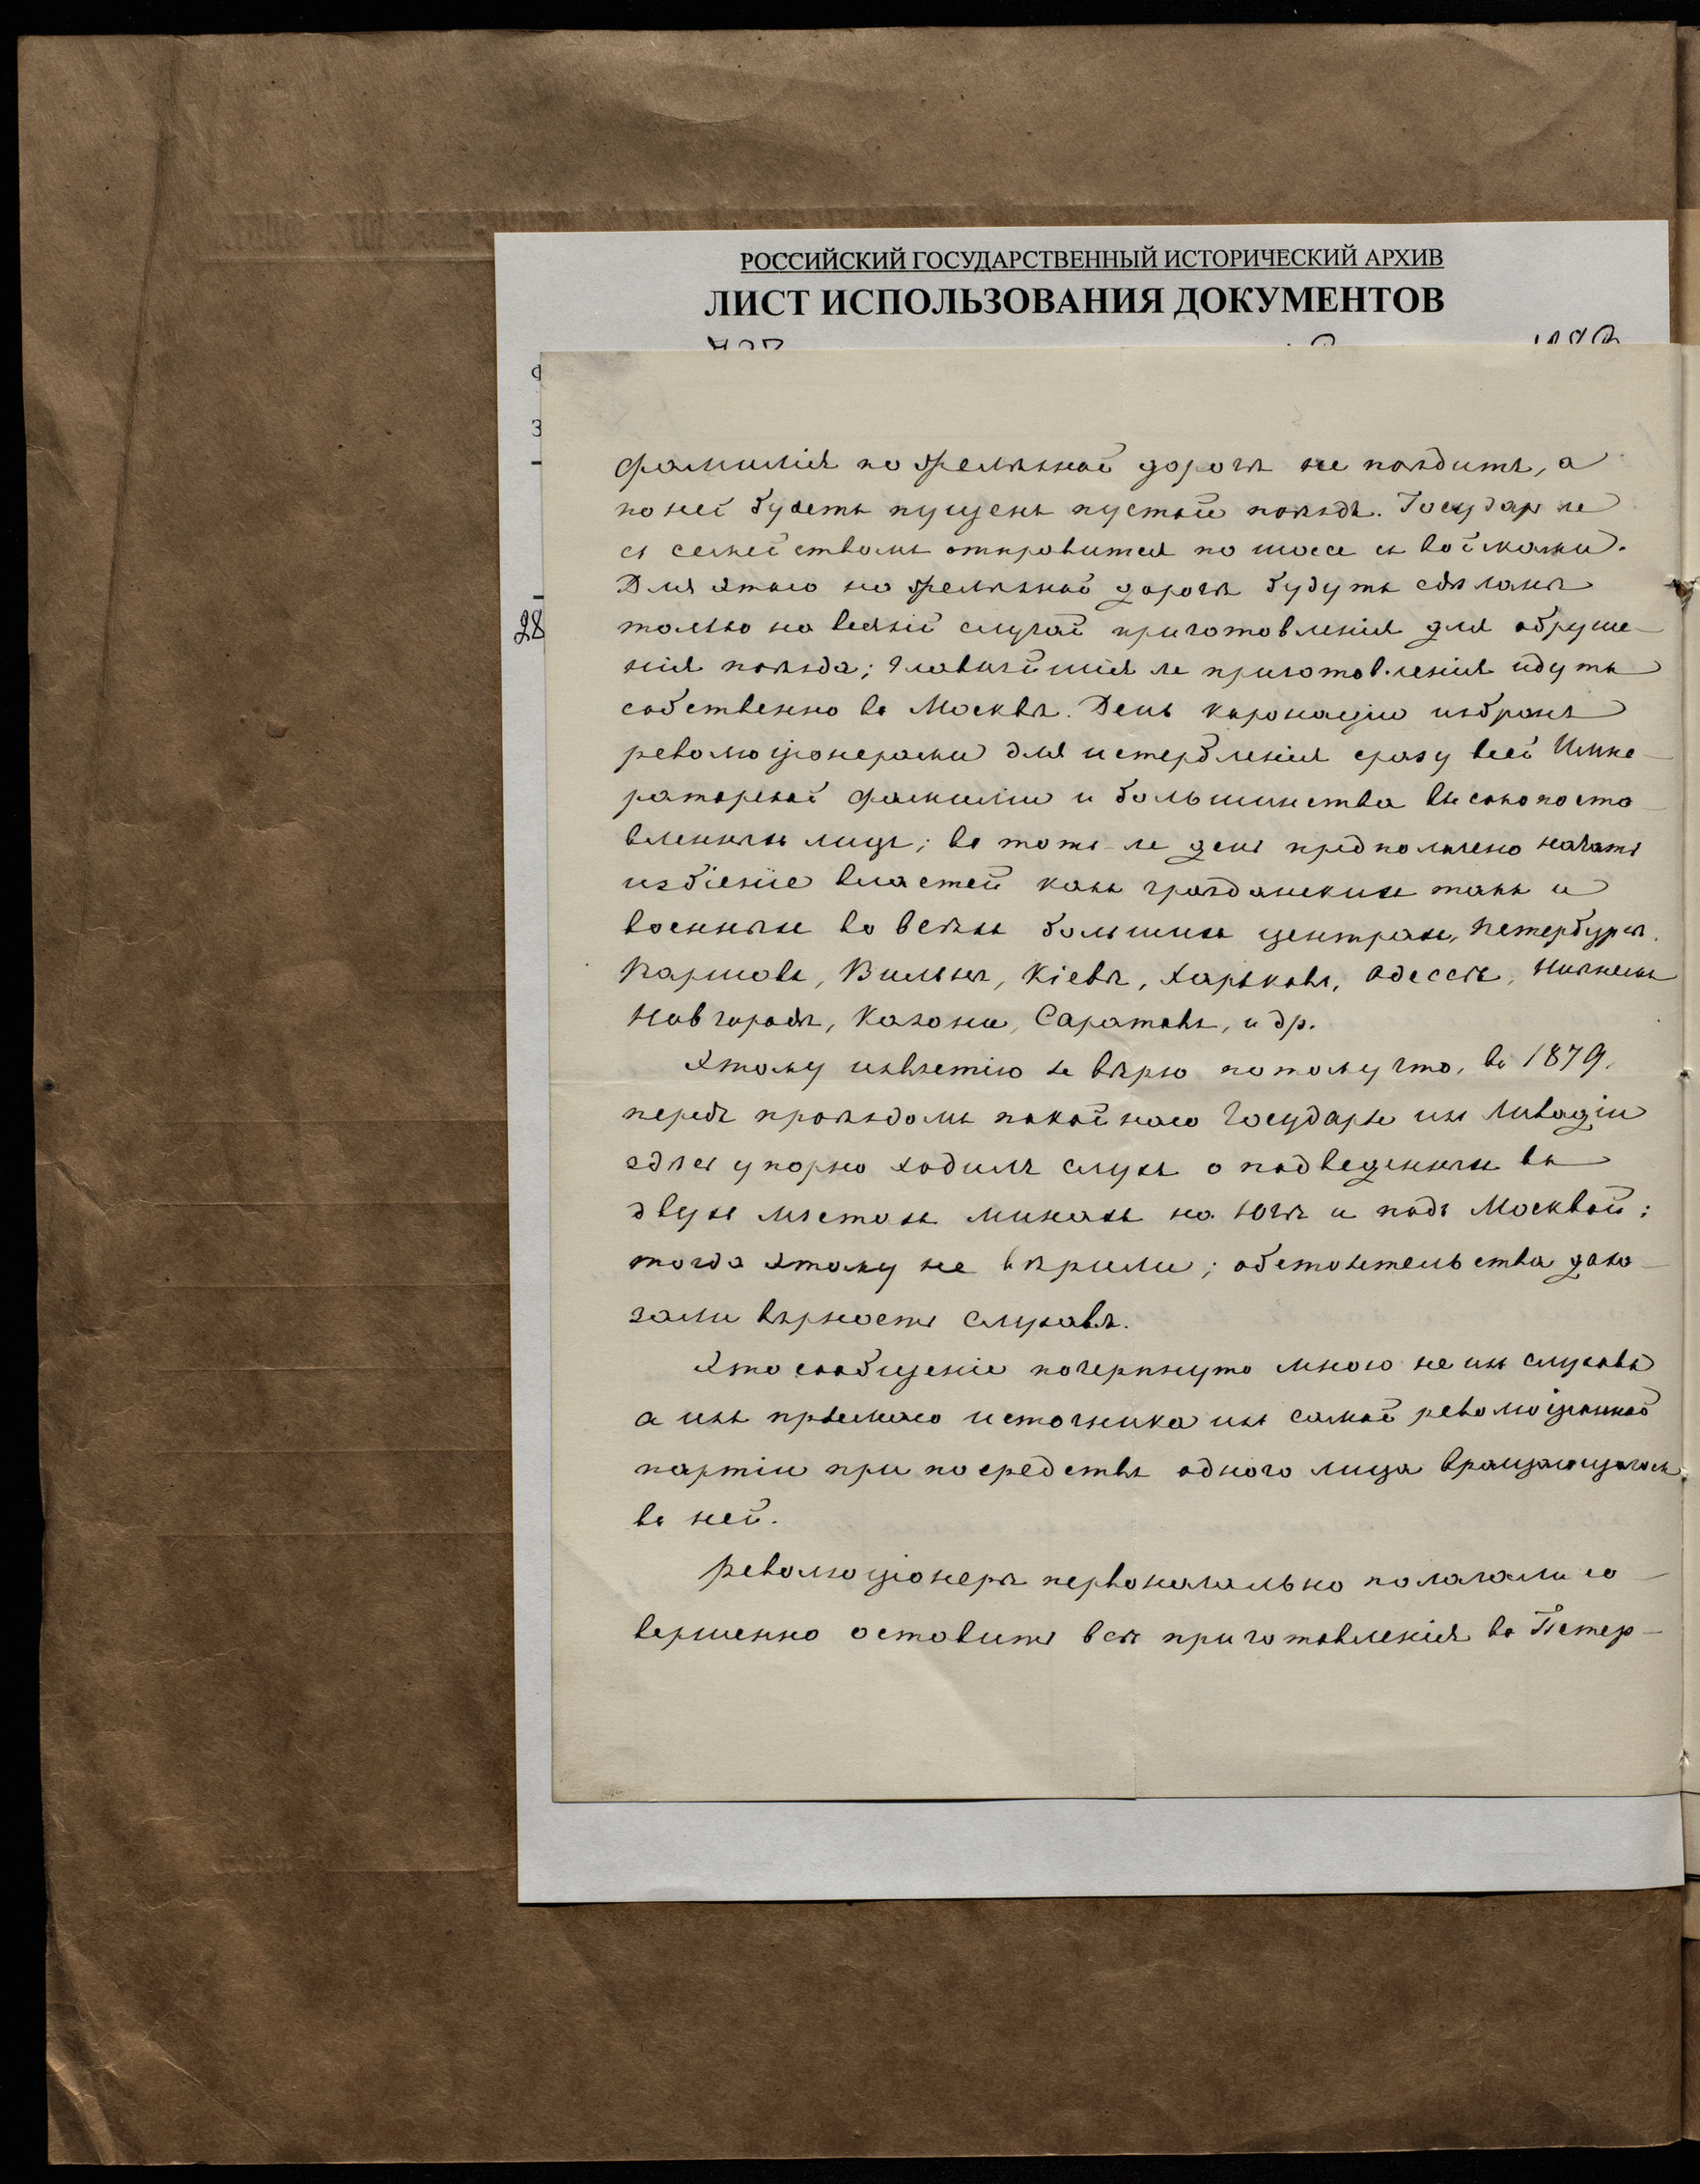 РОССИЙСКИЙ ГОСУДАРСТВЕННЫЙ ИСТОРИЧЕСКИЙ АРХИВ
ЛИСТ ИСПОЛЬЗОВАНИЯ ДОКУМЕНТОВ
28
фамилія по желѣзной дорогѣ не поѣдитъ, а
по ней будетъ пущенъ пустой поѣздъ. Государь же
съ семействомъ отправится по шоссе съ войсками.
Для этого на желѣзной дорогѣ будутъ сдѣланы
только на всякій случай приготовленія для обруше-
нія поѣзда; главнѣйшія же приготовленія идутъ
собственно въ Москвѣ. День коронаціи избранъ
революціонерами для истербленія сразу всей Импе-
раторской фамиліи и большинства высокопоста-
вленныхъ лицъ; въ тотъ-же день предположено начать
избіеніе властей какъ гражданскихъ такъ и
военныхъ во всѣхъ большихъ центрахъ, Петербургѣ.
Варшавѣ, Вильнѣ, Кіевѣ, Харьковѣ, Одессѣ, Нижнемъ
Новгородѣ, Казани, Саратовѣ, и др.
Этому извѣстію я вѣрю потому что, въ 1879.
передъ проѣздомъ покойнаго Государя изъ Ливадіи
здѣсь упорно ходилъ слухъ о подведенныхъ въ
двухъ мѣстахъ минахъ на Югѣ и подъ Москвой:
тогда этому не вѣрили; обстоятельства дока-
зали вѣрность слуховъ.
Это сообщеніе почерпнуто мною не изъ слуховъ
а изъ прямаго источника изъ самой революціонной
партіи при посредствѣ одного лица вращающагося
въ ней.
Революціонеры первоначально полагали со-
вершенно оставить всѣ приготовленія въ Петер-